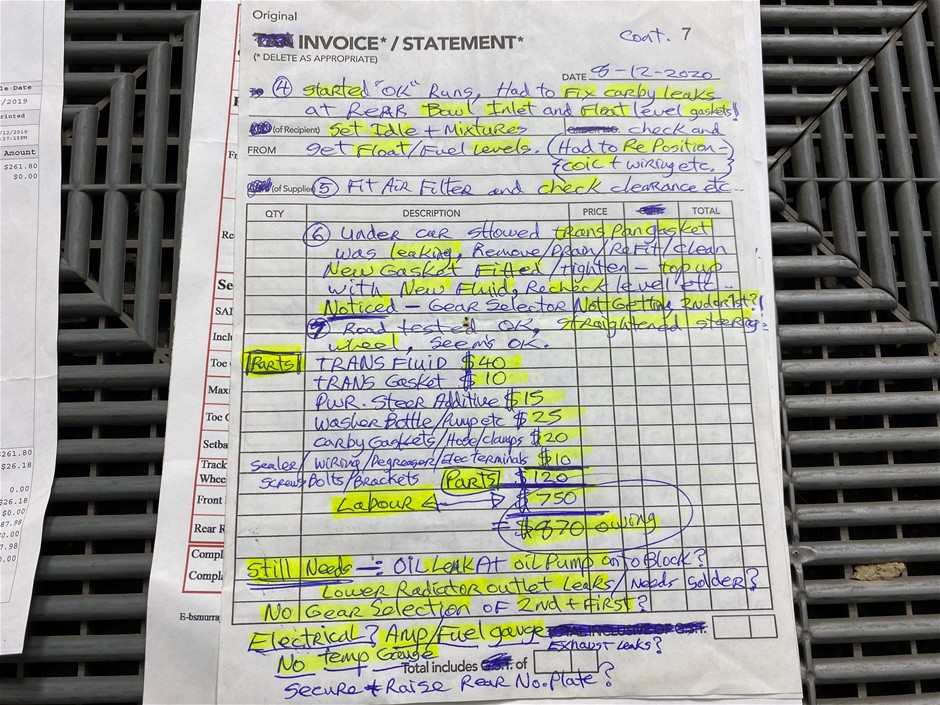 Original
INVOICE* / STATEMENT*
Cont. 7
(* DELETE AS APPROPRIATE)
DATE 8-12-2020
④ Started "OK" Runs, Had to Fix carby leaks
at Rear Bowl Inlet and Float level gaskets!
(of Recipient) Set Idle + Mixtures check and
FROM get Float/Fuel Levels. (Had to RePosition
coil + wiring etc.}
(of Supplier) ⑤ Fit Air Filter and check clearance etc..
QTY DESCRIPTION PRICE TOTAL
⑥ Under car showed trans Pan gasket
was leaking, Remove/Drain/ReFit/clean
New Gasket Fitted/tighten - top up
with New Fluid, Recheck level etc..
Noticed - Gear Selector Not Getting 2nd or 1st?!
⑦ Road tested OK, straightened steering
wheel, seems OK.
Parts TRANS FLUID $40
TRANS Gasket $10
PWR. Steer Additive $15
Washer Bottle/Pump etc $25
Carby Gaskets/Hose/clamps $20
Sealer/Wiring/Degreaser/Elec terminals $10
Screws Bolts/Brackets Parts $120
Labour $750
= $870 owing
Still Needs -: OIL LEAK At oil Pump onto Block?
Lower Radiator outlet leaks/Needs Solder?
No Gear Selection of 2nd + First?
Electrical? Amp/Fuel gauge TOTAL INCLUSIVE OF G.S.T.
Exhaust Leaks?
No temp Gauge
Total includes G.S.T. of
Secure + Raise Rear No. Plate?
/2019
rinted
/12/2019
:37:15PM
Amount
$261.80
$0.00
$261.80
$26.18
0.00
$26.18
$0.00
Se
Toe
Toe
Setba
Track
Whee
Front
Rear R
Compl
Compla
E-bsmurra